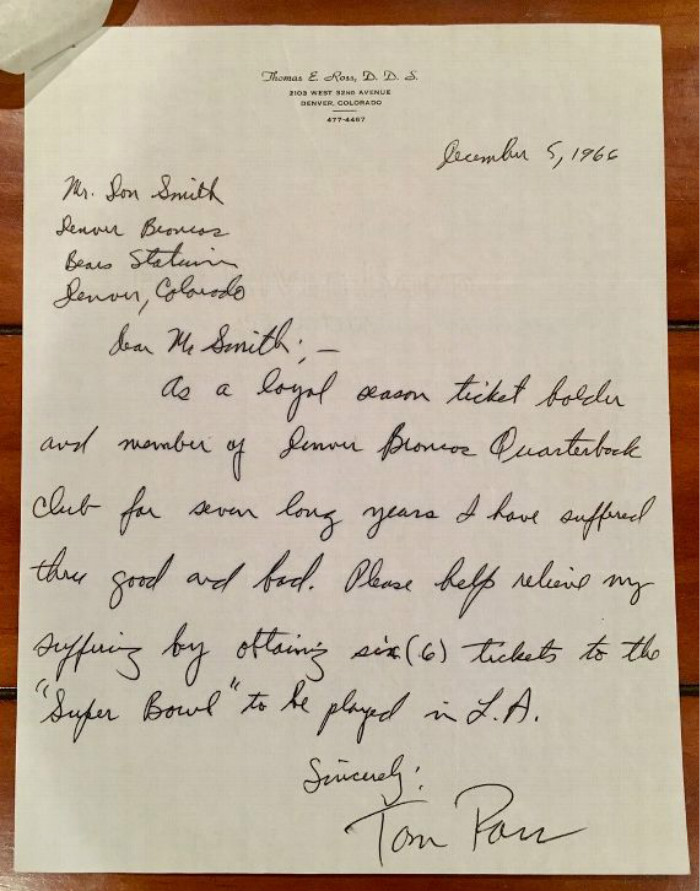 Thomas E. Ross, D. D. S.
2103 WEST 32ND AVENUE
DENVER, COLORADO
477-4467
December 5, 1966
Mr. Don Smith
Denver Broncos
Bears Stadium
Denver, Colorado
Dear Mr Smith; —
As a loyal season ticket holder
and member of Denver Broncos Quarterback
Club for seven long years I have suffered
thru good and bad. Please help relieve my
suffering by obtaining six (6) tickets to the
"Super Bowl" to be played in L.A.
Sincerely:
Tom Ross